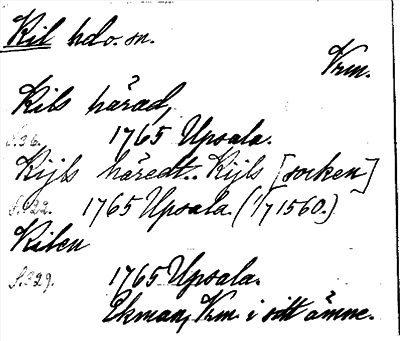 Kil hdo. sn.
Vrm.
Kils härad,
S. 36. 1765 Upsala.
Kijls häredt.. Kijls [socken]
S. 122. 1765 Upsala. (1/7 1560.)
Kilen
S. 329. 1765 Upsala.
Ekman, Vrm. i sitt ämne.